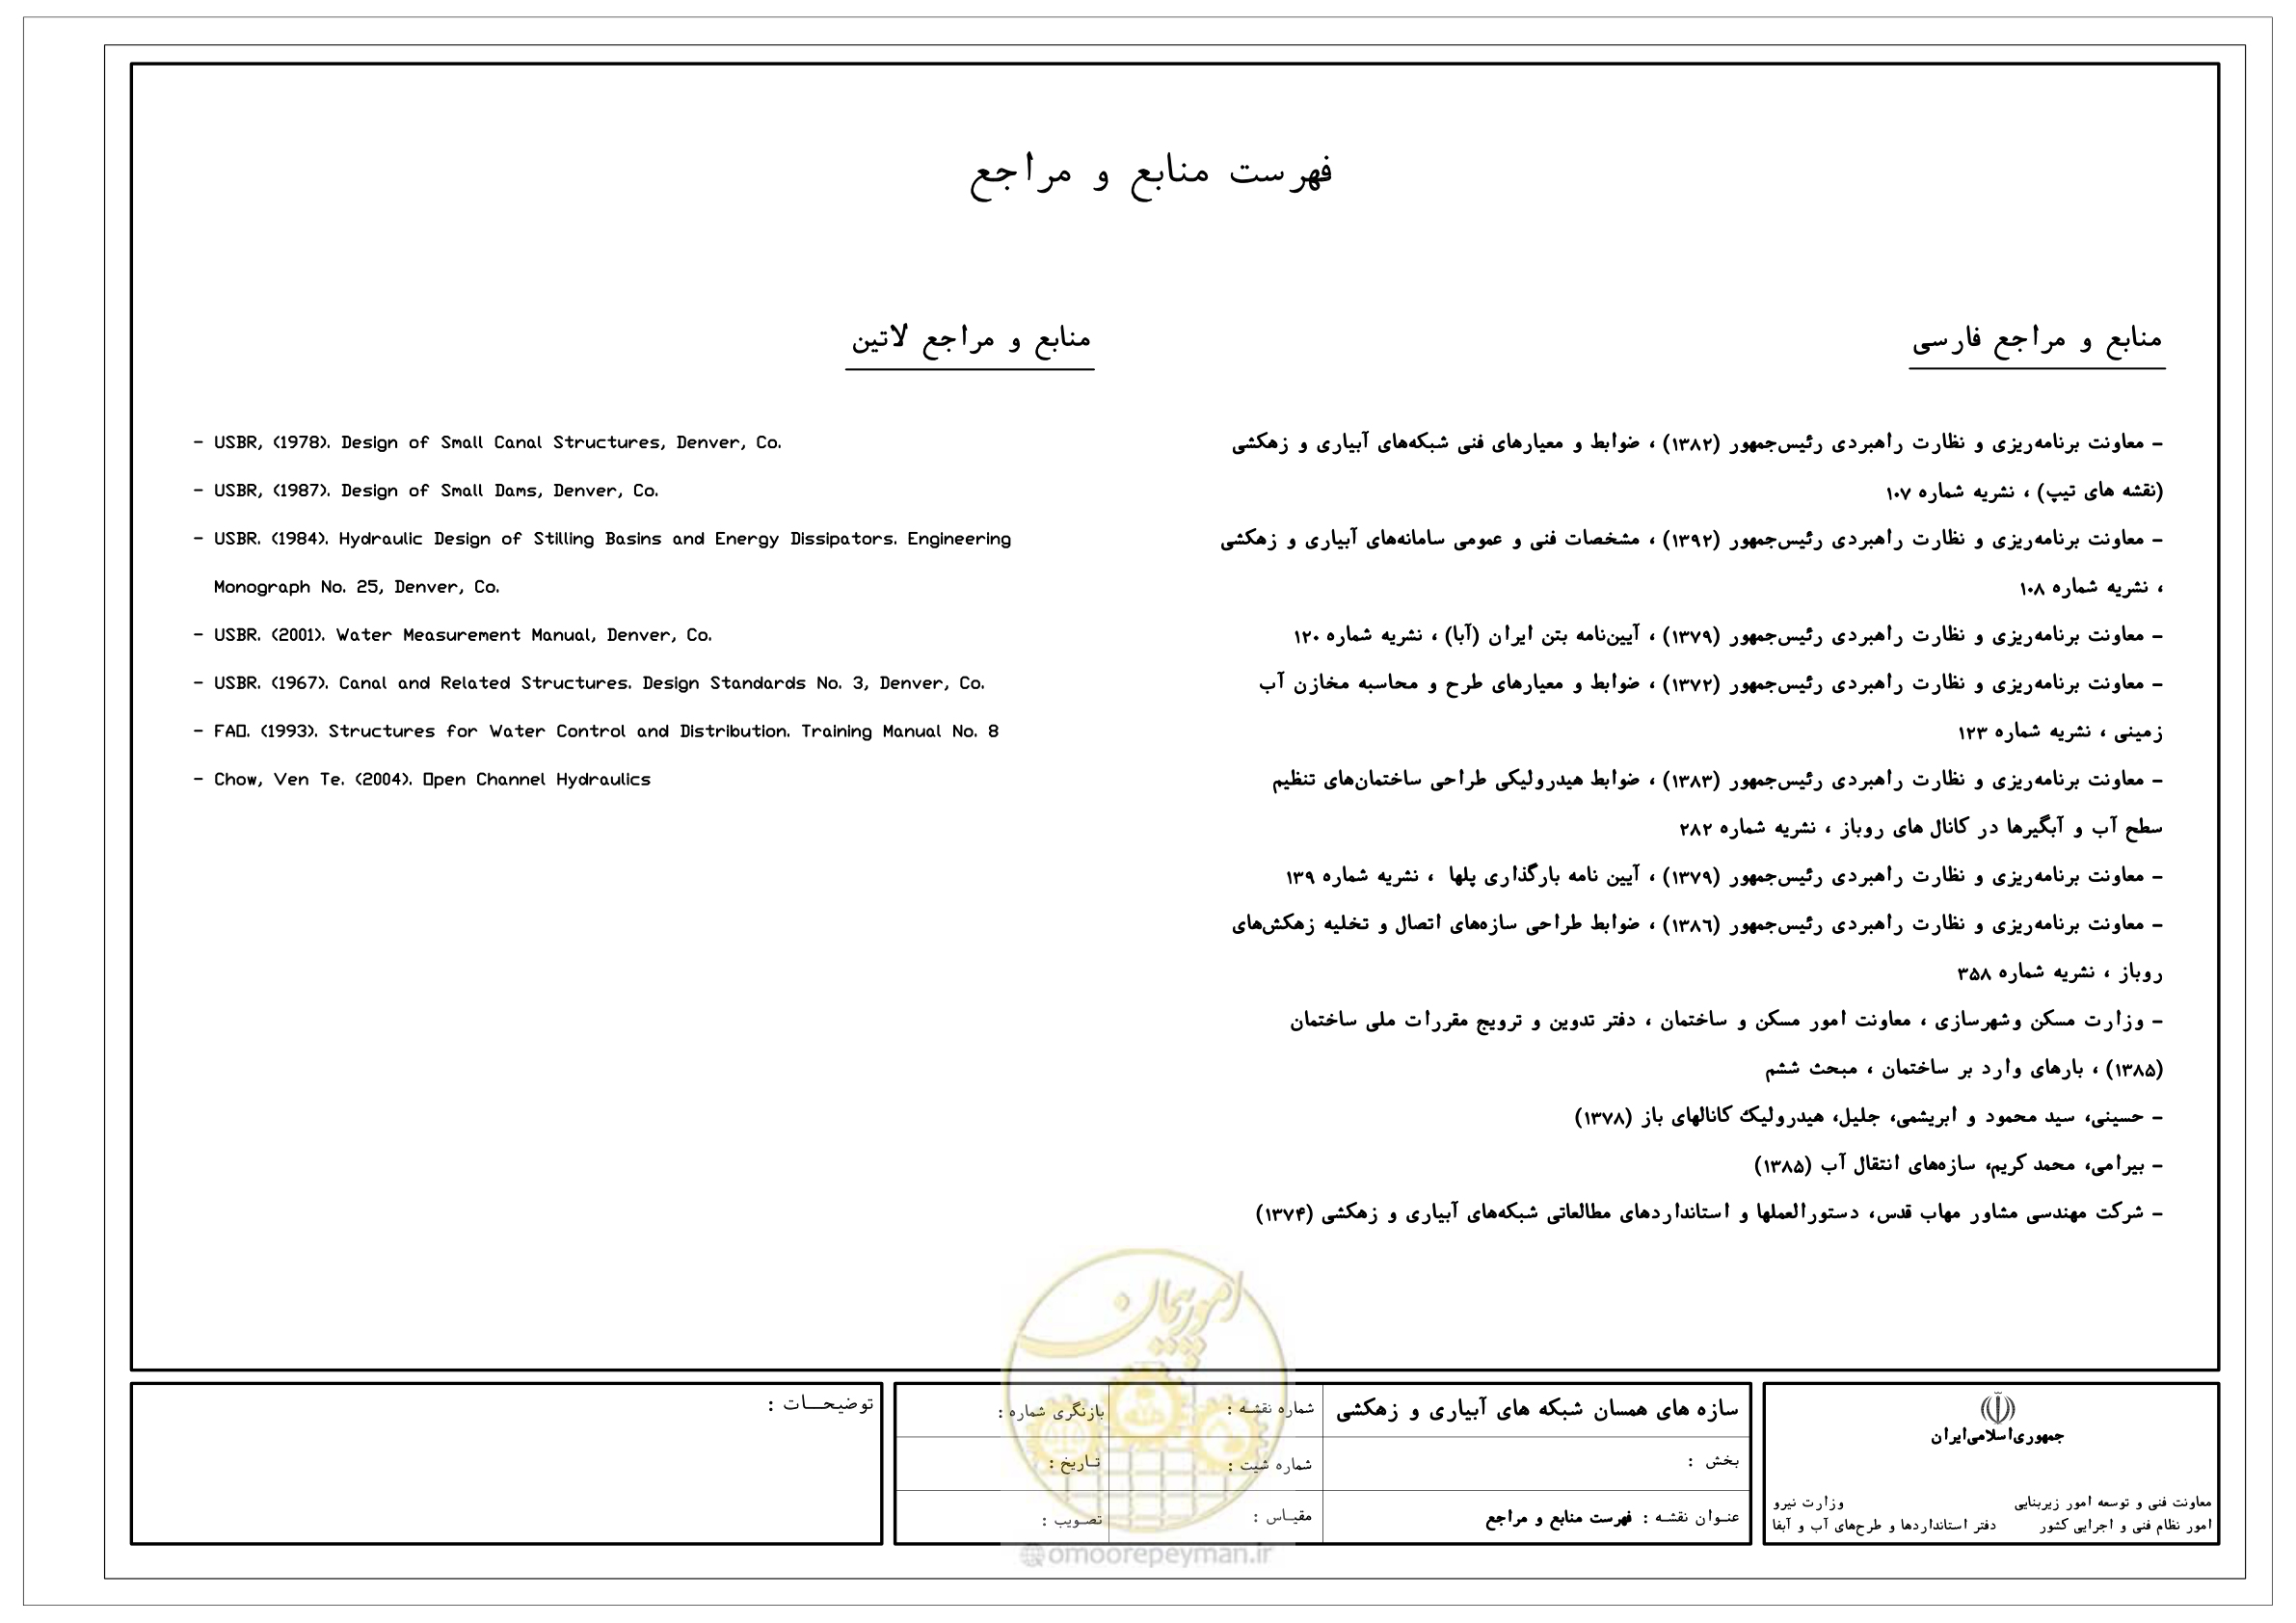 فهرست منابع و مراجع
منابع و مراجع فارسی
- معاونت برنامه‌ریزی و نظارت راهبردی رئیس‌جمهور (۱۳۸۲) ، ضوابط و معیارهای فنی شبکه‌های آبیاری و زهکشی
(نقشه های تیپ) ، نشریه شماره ۱۰۷
- معاونت برنامه‌ریزی و نظارت راهبردی رئیس‌جمهور (۱۳۹۲) ، مشخصات فنی و عمومی سامانه‌های آبیاری و زهکشی
، نشریه شماره ۱۰۸
- معاونت برنامه‌ریزی و نظارت راهبردی رئیس‌جمهور (۱۳۷۹) ، آیین‌نامه بتن ایران (آبا) ، نشریه شماره ۱۲۰
- معاونت برنامه‌ریزی و نظارت راهبردی رئیس‌جمهور (۱۳۷۲) ، ضوابط و معیارهای طرح و محاسبه مخازن آب
زمینی ، نشریه شماره ۱۲۳
- معاونت برنامه‌ریزی و نظارت راهبردی رئیس‌جمهور (۱۳۸۳) ، ضوابط هیدرولیکی طراحی ساختمان‌های تنظیم
سطح آب و آبگیرها در کانال های روباز ، نشریه شماره ۲۸۲
- معاونت برنامه‌ریزی و نظارت راهبردی رئیس‌جمهور (۱۳۷۹) ، آیین نامه بارگذاری پلها ، نشریه شماره ۱۳۹
- معاونت برنامه‌ریزی و نظارت راهبردی رئیس‌جمهور (۱۳۸۶) ، ضوابط طراحی سازه‌های اتصال و تخلیه زهکش‌های
روباز ، نشریه شماره ۳۵۸
- وزارت مسکن وشهرسازی ، معاونت امور مسکن و ساختمان ، دفتر تدوین و ترویج مقررات ملی ساختمان
(۱۳۸۵) ، بارهای وارد بر ساختمان ، مبحث ششم
- حسینی، سید محمود و ابریشمی، جلیل، هیدرولیک کانالهای باز (۱۳۷۸)
- بیرامی، محمد کریم، سازه‌های انتقال آب (۱۳۸۵)
- شرکت مهندسی مشاور مهاب قدس، دستورالعملها و استانداردهای مطالعاتی شبکه‌های آبیاری و زهکشی (۱۳۷۴)
منابع و مراجع لاتین
- USBR, (1978). Design of Small Canal Structures, Denver, Co.
- USBR, (1987). Design of Small Dams, Denver, Co.
- USBR. (1984). Hydraulic Design of Stilling Basins and Energy Dissipators. Engineering
Monograph No. 25, Denver, Co.
- USBR. (2001). Water Measurement Manual, Denver, Co.
- USBR. (1967). Canal and Related Structures. Design Standards No. 3, Denver, Co.
- FAO. (1993). Structures for Water Control and Distribution. Training Manual No. 8
- Chow, Ven Te. (2004). Open Channel Hydraulics
جمهوری‌اسلامی‌ایران
معاونت فنی و توسعه امور زیربنایی
امور نظام فنی و اجرایی کشور
وزارت نیرو
دفتر استانداردها و طرح‌های آب و آبفا
سازه های همسان شبکه های آبیاری و زهکشی
بخش :
عنـوان نقشـه : فهرست منابع و مراجع
شماره نقشـه :
شماره شیت :
مقیـاس :
بازنگری شماره :
تـاریخ :
تصـویب :
توضیحـــات :
امور پیمان
@omoorepeyman.ir